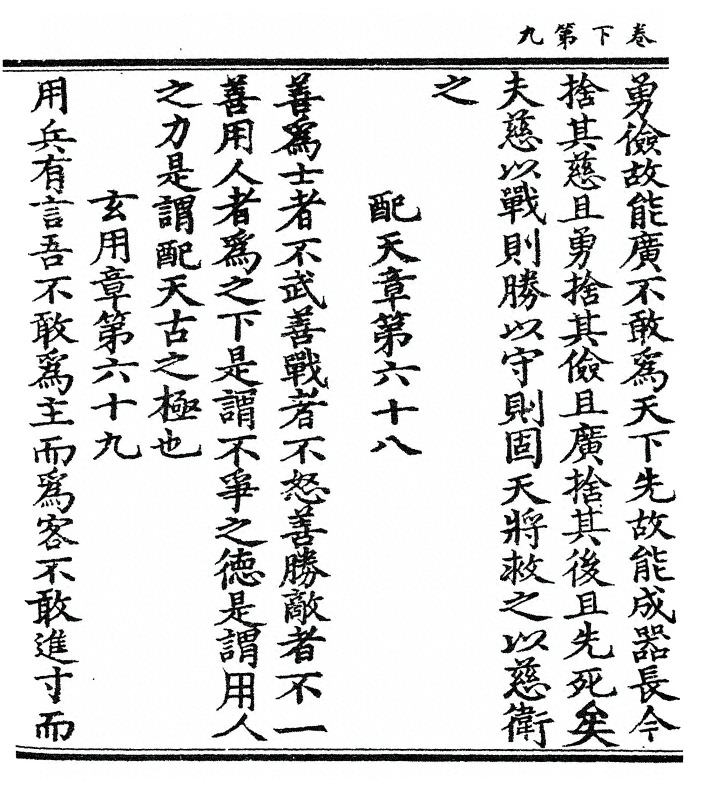 卷下第九
勇儉故能廣不敢爲天下先故能成器長今
捨其慈且勇捨其儉且廣捨其後且先死矣
夫慈以戰則勝以守則固天將救之以慈衛
之
配天章第六十八
善爲士者不武善戰者不怒善勝敵者不一
善用人者爲之下是謂不爭之德是謂用人
之力是謂配天古之極也
玄用章第六十九
用兵有言吾不敢爲主而爲客不敢進寸而